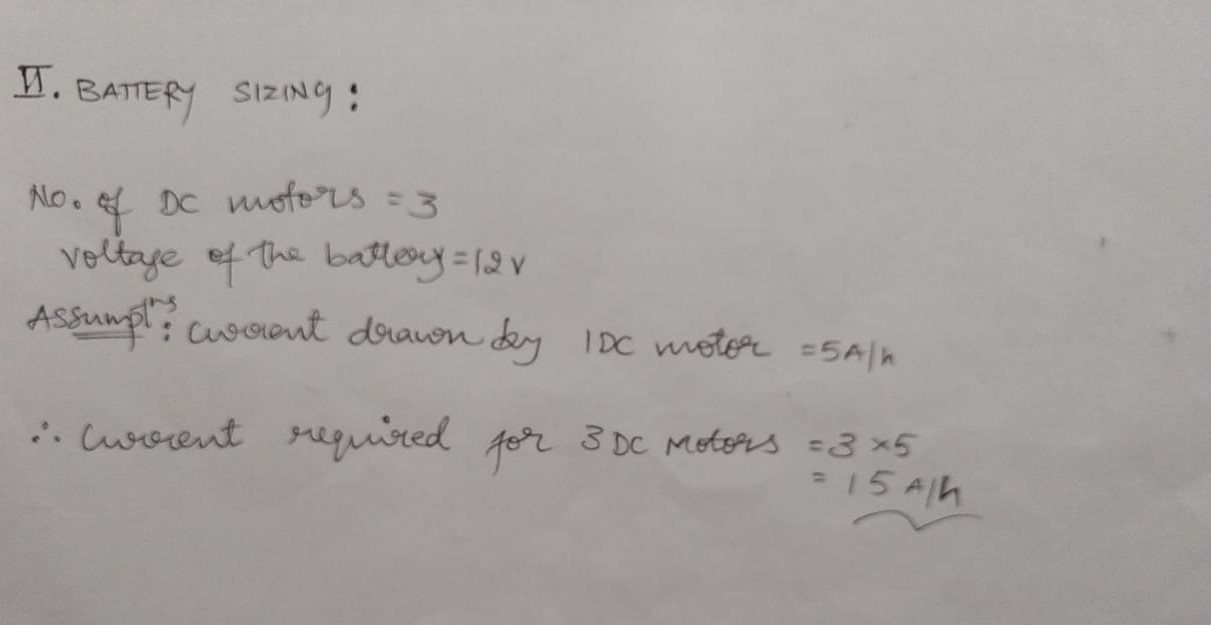 VI. BATTERY SIZING:
No. of DC motors = 3
voltage of the battery = 12 V
Assumptns: current drawn by 1 DC motor = 5 A/h
∴ current required for 3 DC Motors = 3 × 5
= 15 A/h